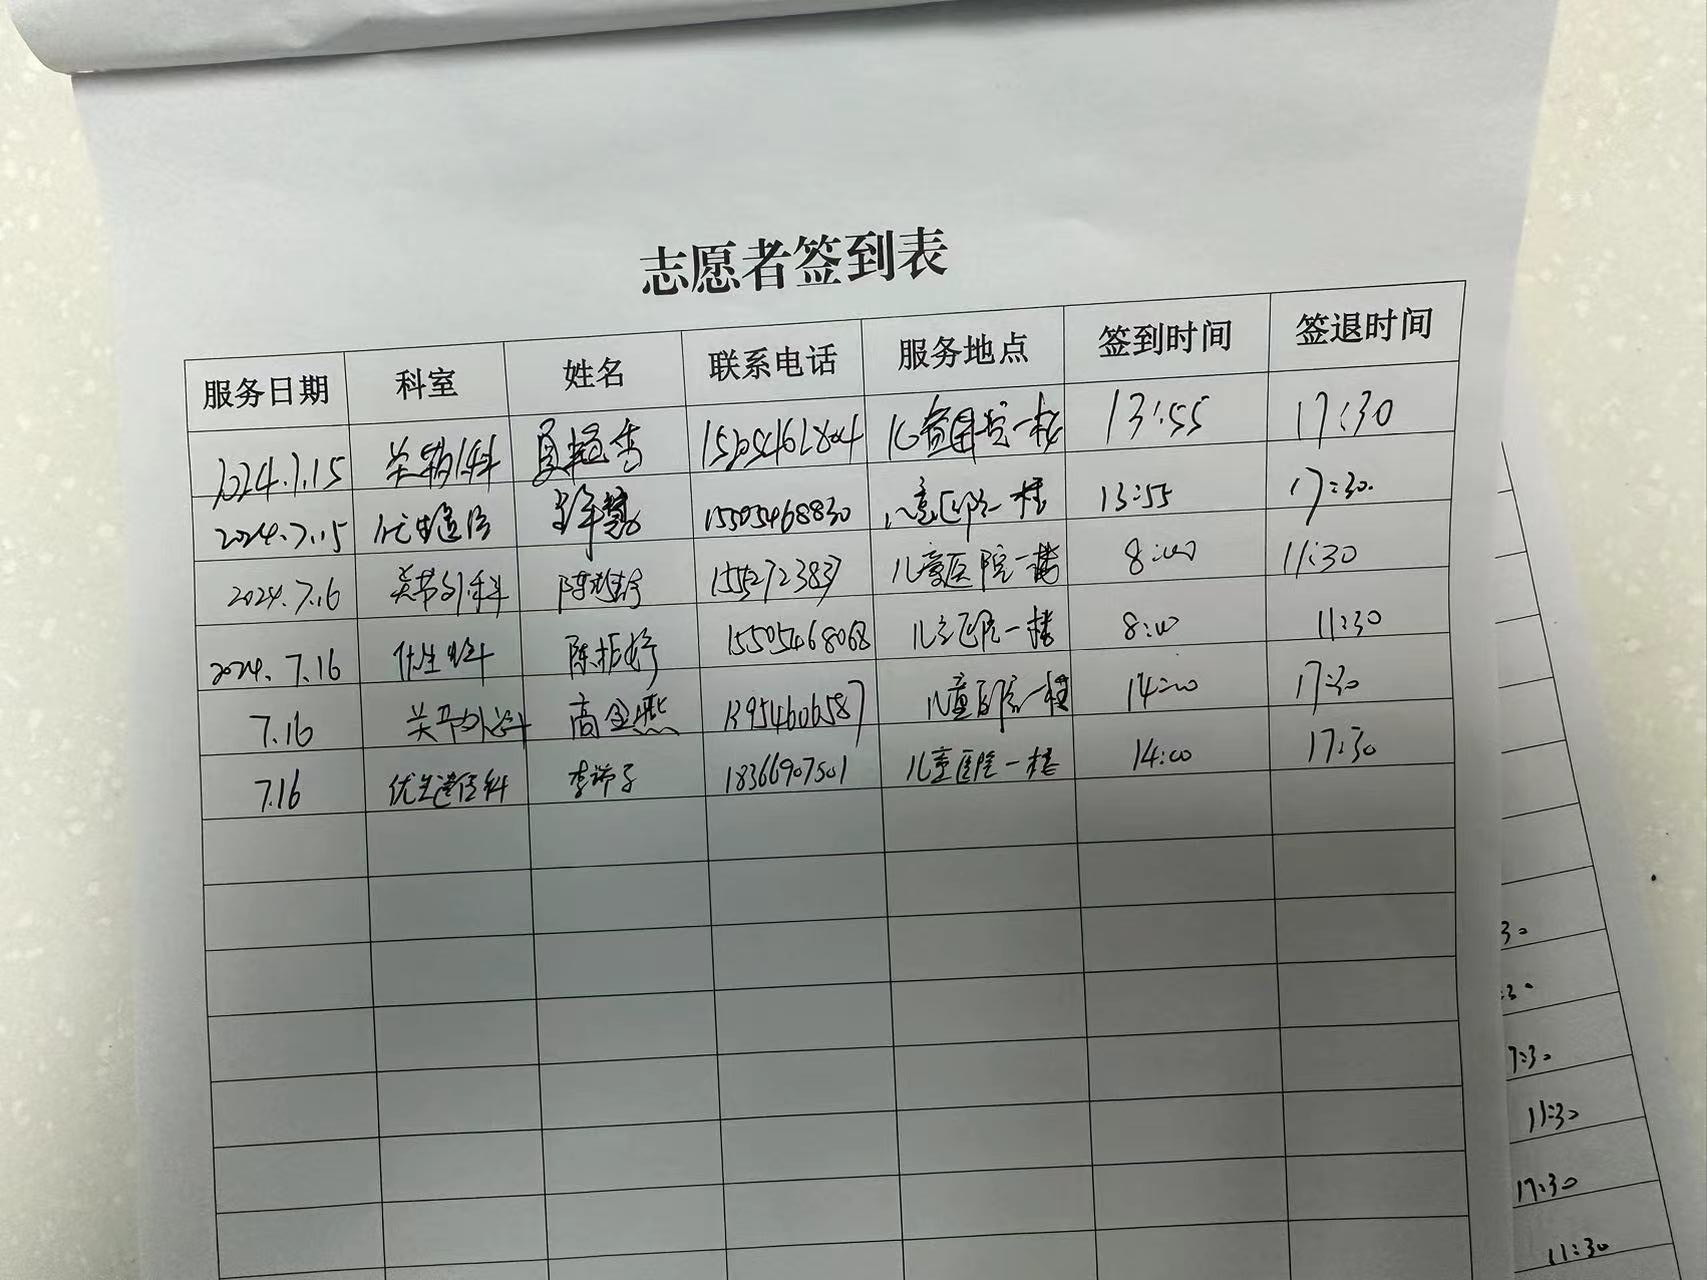 志愿者签到表
服务日期 科室 姓名 联系电话 服务地点 签到时间 签退时间
2024.7.15 关节外科 15054612804 儿童医院一楼 13:55 17:30
2024.7.15 优生遗传 徐慧 15505468830 儿童医院一楼 13:55 17:30.
2024.7.16 关节外科 儿童医院一楼 8:00 11:30
2024. 7.16 优生科 陈 15505468068 儿童医院一楼 8:00 11:30
7.16 关节外科 高金燕 13954606587 儿童医院一楼 14:00 17:30
7.16 优生遗传科 李 子 18366907501 儿童医院一楼 14:00 17:30
30
:30
7:30
11:30
17:30
11:30